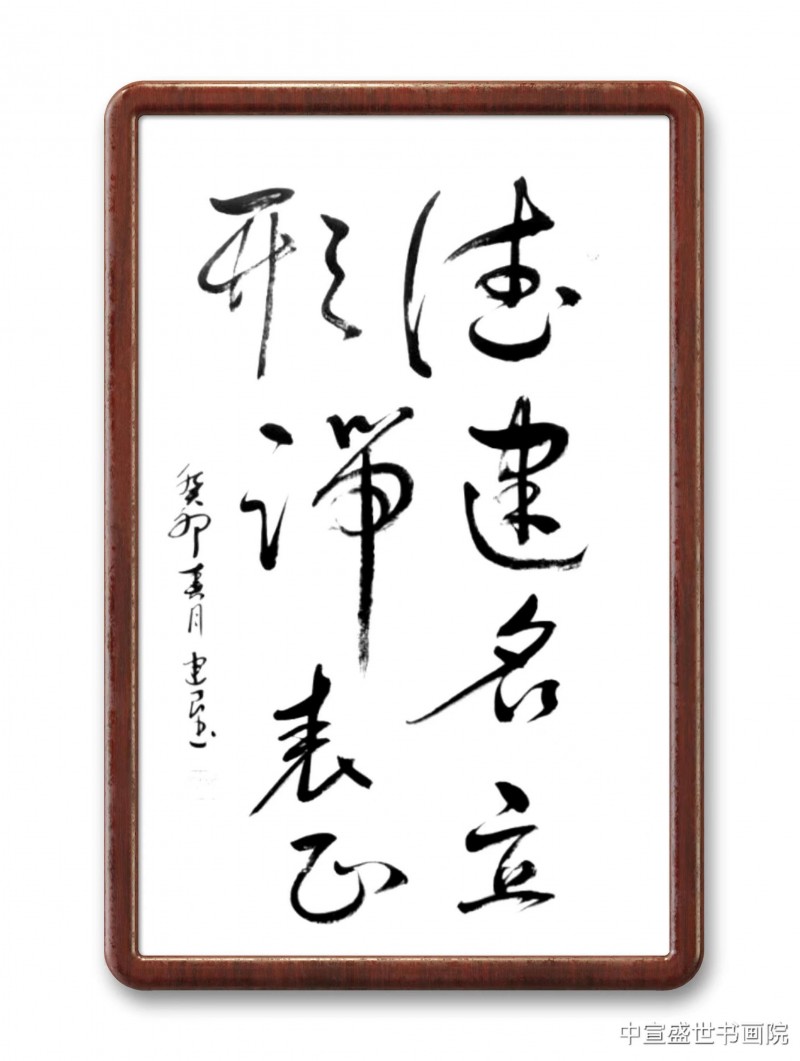 德建名立
形端表正
癸卯春月 建
中宣盛世书画院